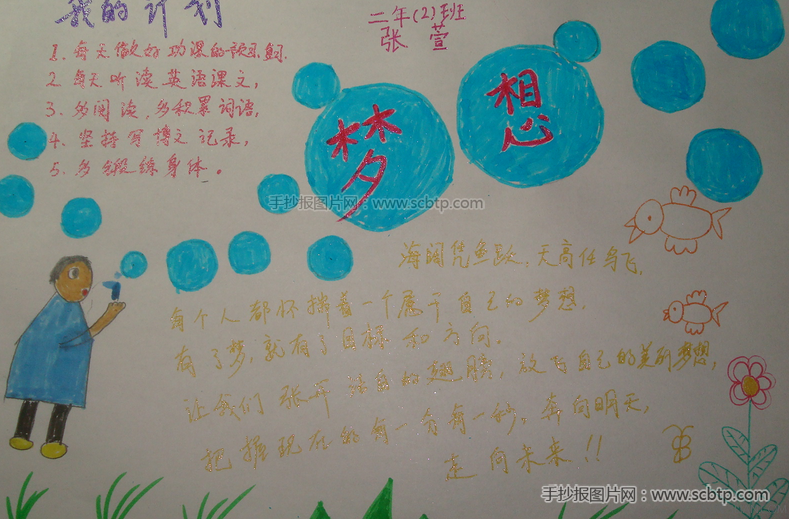 我的计划
二年(2)班
张萱
1. 每天做好功课的预习
2. 每天听读英语课文,
3. 多阅读,多积累词语,
4. 坚持写博文记录,
5. 多锻练身体。
梦想
手抄报图片网:www.scbtp.com
海阔凭鱼跃,天高任鸟飞,
每个人都怀揣着一个属于自己的梦想,
有了梦,就有了目标和方向,
让我们张开自的翅膀,放飞自己的美丽梦想,
把握现在的每一分每一秒,奔向明天,
走向未来!!
手抄报图片网:www.scbtp.com